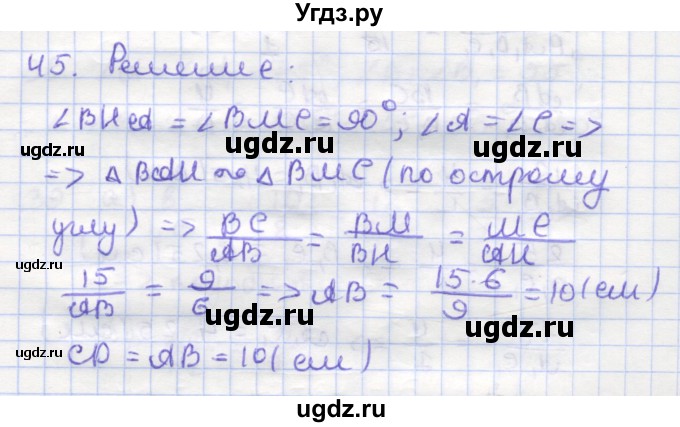 Угдз.ру
45. Решение:
∠BHA = ∠BMC = 90°; ∠A = ∠C =>
ugdz.ru ugdz.ru
=> △BAH ∾ △BMC (по острому
углу) => BC/AB = BM/BH = MC/AH
ugdz.ru ugdz.ru
15/AB = 9/6 => AB = 15·6/9 = 10 (см)
ugdz.ru ugdz.ru
CD = AB = 10 (см)
ugdz.ru
ugdz.ru